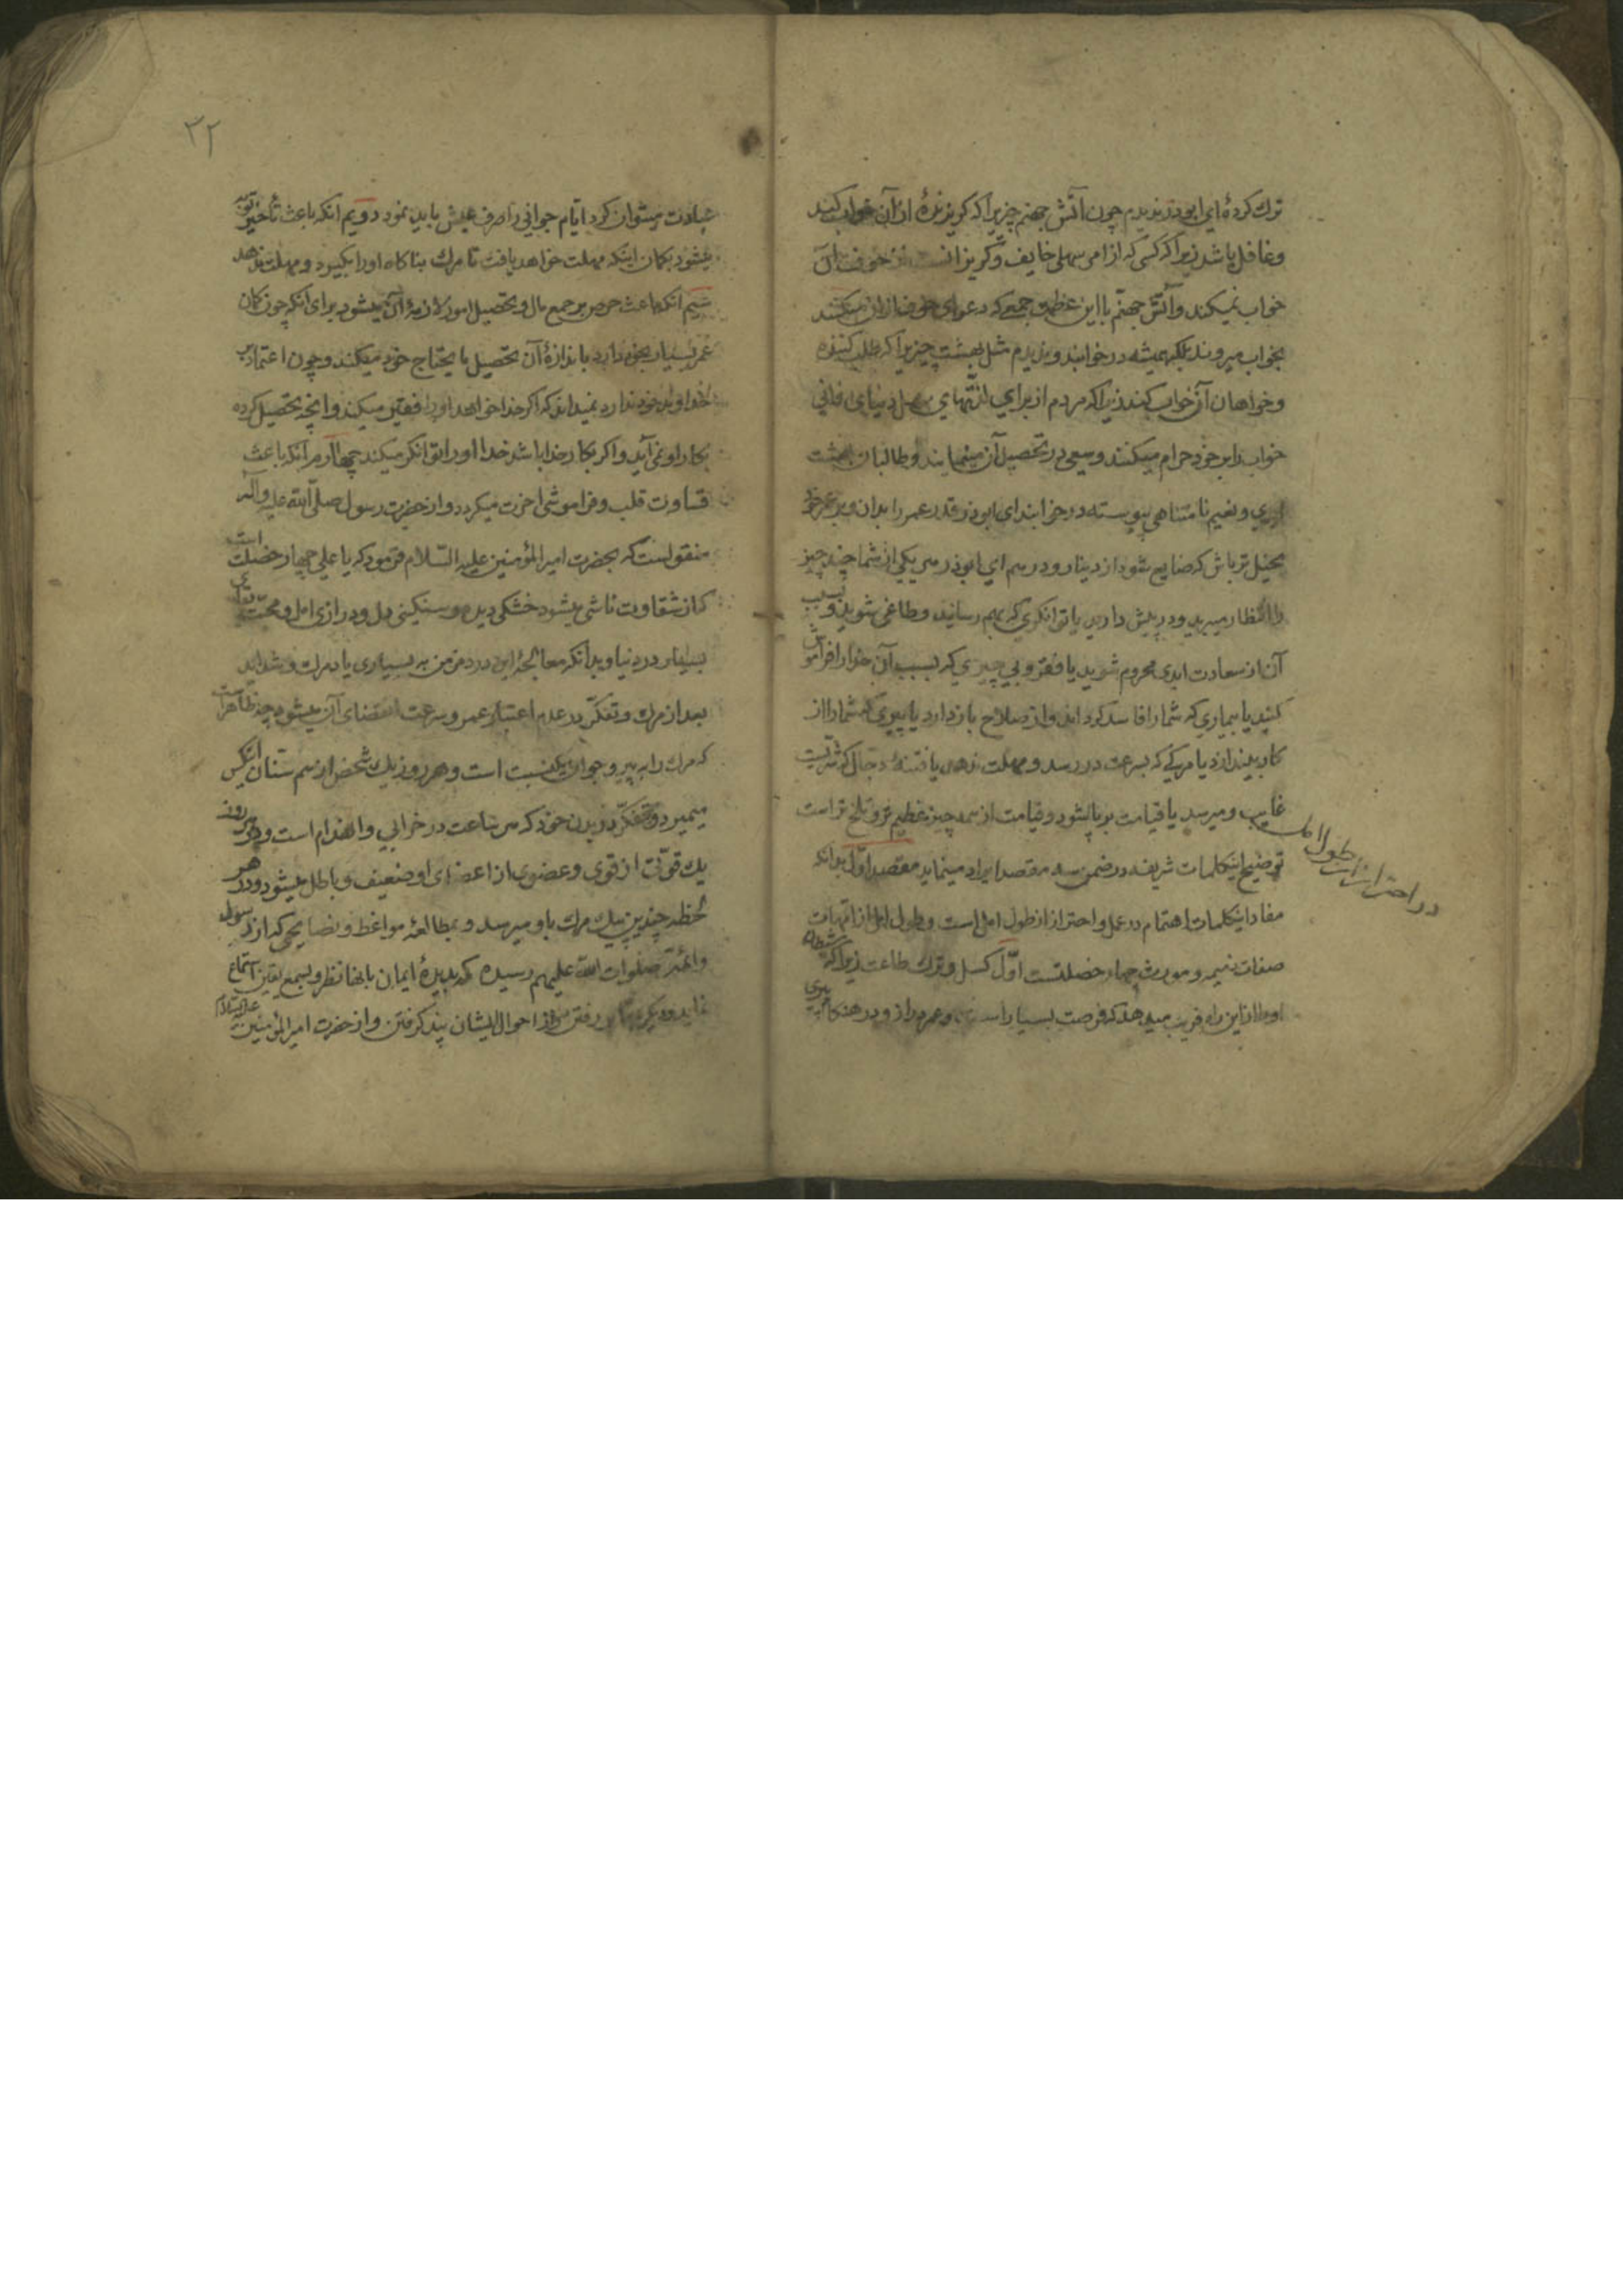 ترك كردهٔ اي ابوذر نديدم چون آتش جهنم چيزيرا كه كريزندهٔ از آن خواب كند
و غافل باشد زيرا كه كسى كه از امر سهلى خايف و كريزانست از خوف آن
خواب نميكند و آتش جهنّم با اين عظمت جمعى كه دعواى خوف از آن ميكنند
بخواب ميروند بلكه هميشه در خوابند و نديدم مثل بهشت چيزيرا كه طلب كننده
و خواهان آن خواب كند زيرا كه مردم از براي لذّتهاي سهل دنياى فانى
خواب را بر خود حرام ميكنند و سعى در تحصيل آن مينمايند و طالبان بهشت
ابدي و نعيم نامتناهى پيوسته در خوابند اى ابوذر قدر عمر را بدان و بر عمر خود
بخيل تر باش كه ضايع شود از دينار و درهم اي ابوذر هر يكى از شما چند چيز
را انتظار ميبريد و در پيش داريد يا توانكرى كه بهم رسانيد و طاغى شويد و بسبب
آن از سعادت ابدى محروم شويد يا فقر و بي چيزي كه بسبب آن خدا را فراموش
كنيد يا بيماري كه شما را فاسد كرداند و از صلاح باز دارد يا پيرى كه شما را از
كار بيندازد يا مركى كه بسرعت در رسد و مهلت ندهد يا فتنهٔ دجال كه شرّيست
غايب و ميرسد يا قيامت برپا شود و قيامت از همه چيز عظيم تر و تلخ تر است
توضيح اينكلمات شريفه در ضمن سه مقصد ايراد مينمايد مقصد اوّل بدانكه
مفاد اينكلمات اهتمام در عمل و احتراز از طول امل است و طول امل از امّهات
صفات ذميمه و مورث چهار خصلتست اوّل كسل و ترك طاعت زيرا كه شيطان
او را از اين راه فريب ميدهد كه فرصت بسيار است و عمر دراز و در هنكام پيرى
در احتراز از طول امل
٣٢
عبادت ميتوان كرد ايّام جوانى را صرف عيش بايد نمود دويم انكه باعث تأخير توبه
ميشود بكمان اينكه مهلت خواهد يافت تا مرك بناكاه او را بكيرد و مهلت ندهد
سيّم انكه باعث حرص بر جمع مال و تحصيل امور لازمهٔ آن ميشود براى آنكه چون كمان
عمر بسيار بخود دارد باندازهٔ آن تحصيل ما يحتاج خود ميكند و چون اعتماد بر
خداوند خود ندارد نميداند كه اكر خدا خواهد او را فقير ميكند و انچه تحصيل كرده
بكار او نمى آيد و اكر بكار خدا باشد خدا او را توانكر ميكند چهارم آنكه باعث
قساوت قلب و فراموشى اخرت ميكردد و از حضرت رسول صلّى الله عليه و آله
منقولست كه بحضرت امير المؤمنين عليه السّلام فرمود كه يا على چهار خصلت است
كه از شقاوت ناشى ميشود خشكى ديده و سنكينى دل و درازى امل و محبّت بقاى
بسيار در دنيا و بدانكه معالجهٔ اين درد مزمن به بسيارى ياد مرك و شدايد
بعد از مرك و تفكّر در عدم اعتبار عمر و سرعت انقضاى آن ميشود چه ظاهر است
كه مرك را به پير و جوان يكنسبت است و هر روز يك شخص از هم سنّان انكس
ميميرد و تفكّر در بدن خود كه هر ساعت در خرابي و انهدام است و هر روز
يك قوّتى از قوى و عضوى از اعضاى او ضعيف و باطل ميشود و در هر
لحظه چندين پيك مرك باو ميرسد و بمطالعهٔ مواعظ و نصايحى كه از رسول
و ائمّه صلوات الله عليهم رسيده كه بديدهٔ ايمان بانها نظر و بسمع يقين استماع
نمايد و ديكر بمقابر رفتن و از احوال ايشان پند كرفتن و از حضرت امير المؤمنين عليه السّلام